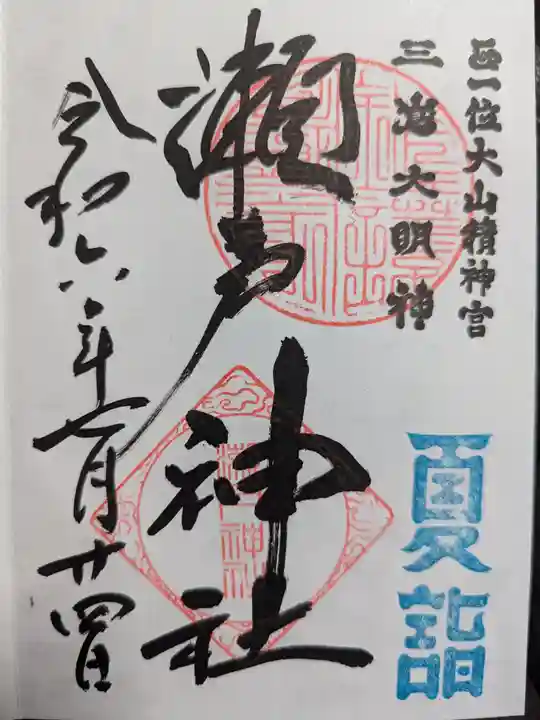 正一位大山積神宮
三嶋大明神
夏詣
瀬戸神社
瀬戸神社
令和六年七月廿四日